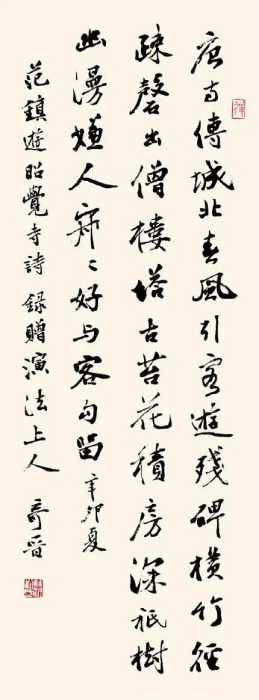 唐寺傳城北春風引客遊殘碑橫竹徑
疎磬出僧樓塔古苔花積房深祇樹
幽漫嫌人寂〻好与客勾留 辛卯夏
范鎮遊昭覺寺詩 録贈演法上人 奇晋